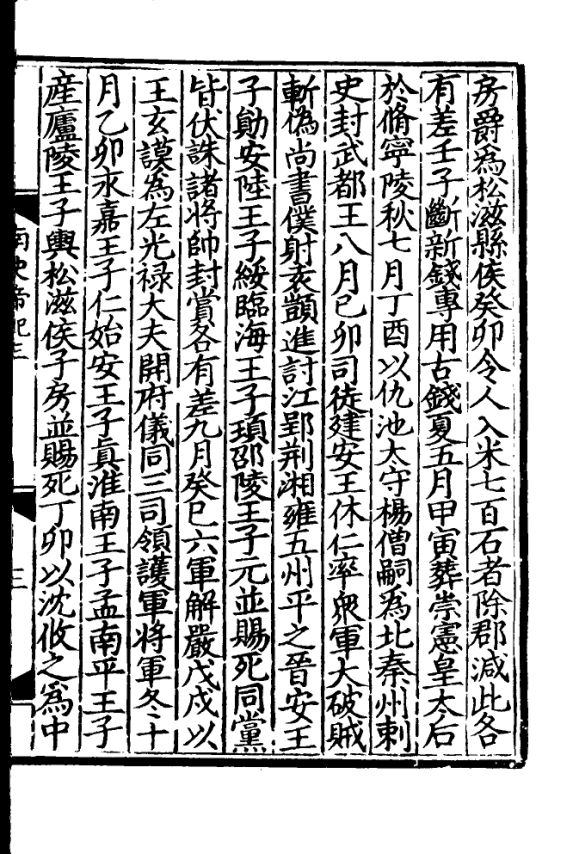 房爵為松滋縣侯癸卯令人入米七百石者除郡減此各
有差壬子斷新錢專用古錢夏五月甲寅葬崇憲皇太后
於脩寧陵秋七月丁酉以仇池太守楊僧嗣為北秦州刺
史封武都王八月己卯司徒建安王休仁率衆軍大破賊
斬偽尚書僕射袁顗進討江郢荆湘雍五州平之晉安王
子勛安陸王子綏臨海王子頊邵陵王子元並賜死同黨
皆伏誅諸將帥封賞各有差九月癸巳六軍解嚴戊戌以
王玄謨為左光禄大夫開府儀同三司領護軍将軍冬十
月乙卯永嘉王子仁始安王子真淮南王子孟南平王子
産廬陵王子輿松滋侯子房並賜死丁卯以沈攸之為中
南史帝紀三
三